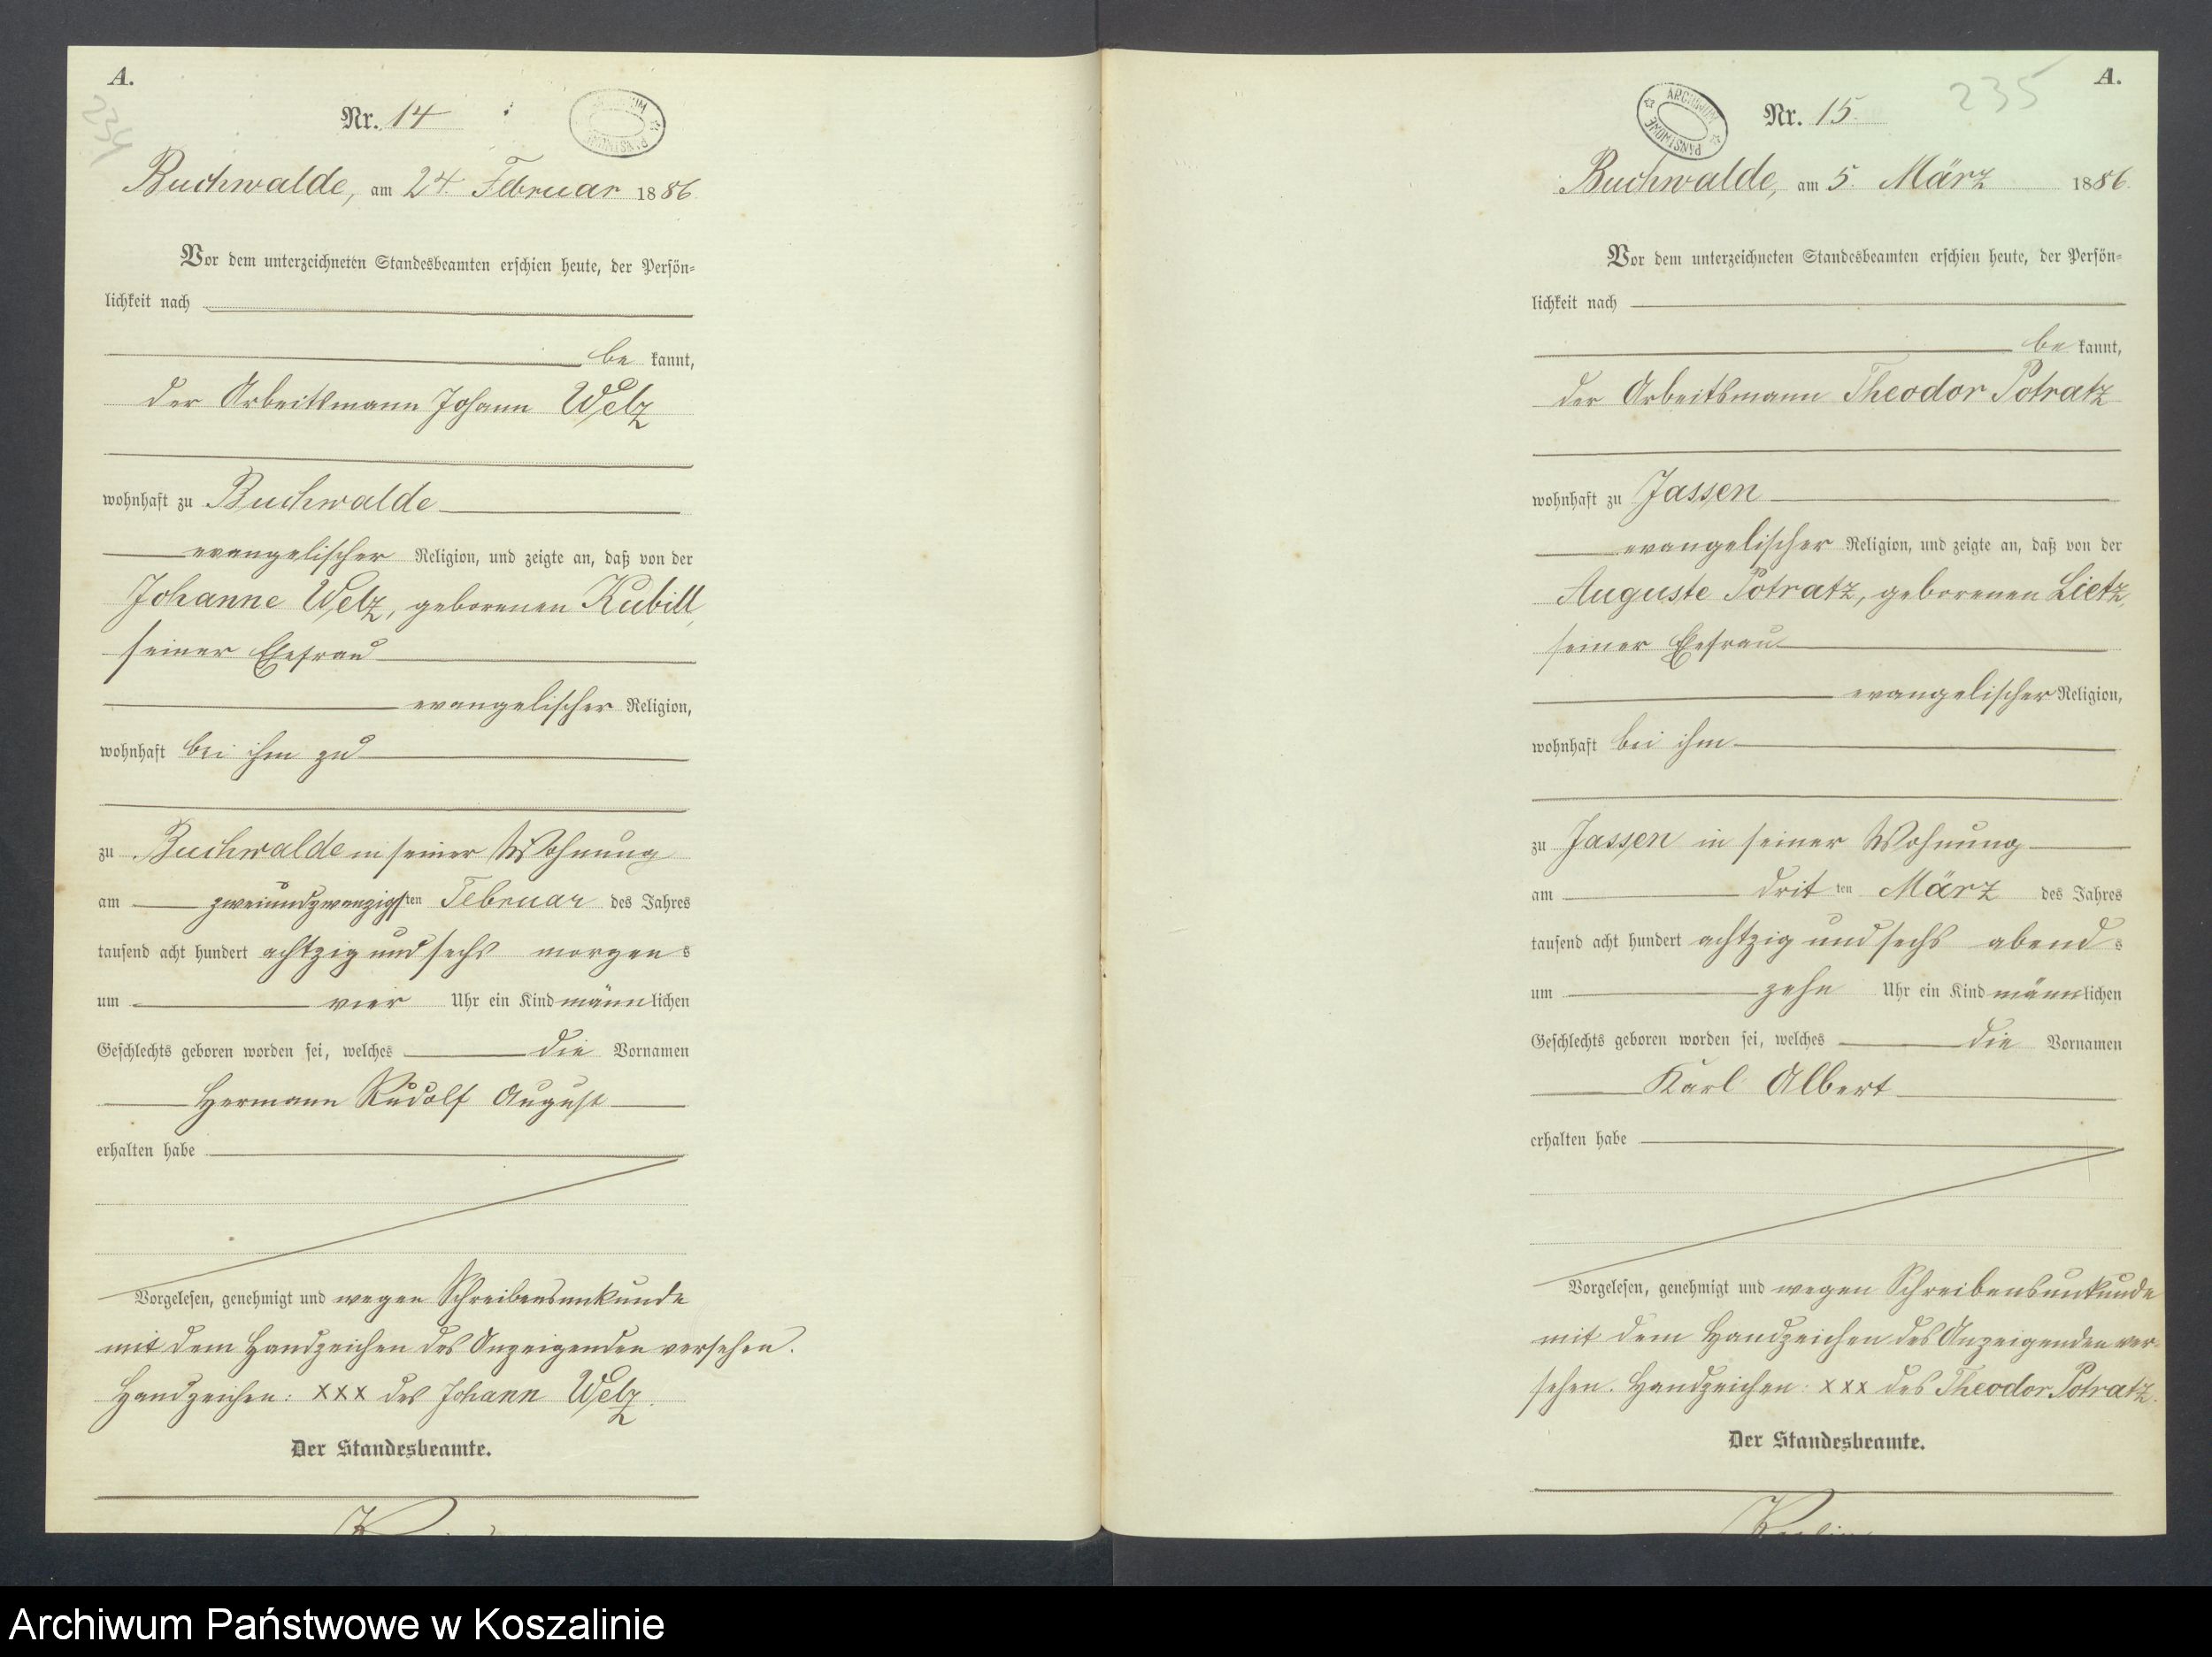 A.
234
Nr. 14
Buchwalde, am 24 Februar 1886
Vor dem unterzeichneten Standesbeamten erschien heute, der Persön-
lichkeit nach
be kannt,
der Arbeitsmann Johann Welz
wohnhaft zu Buchwalde
evangelischer Religion, und zeigte an, daß von der
Johanne Welz, geborenen Kubill,
seiner Ehefrau
evangelischer Religion,
wohnhaft bei ihm zu
zu Buchwalde in seiner Wohnung
am zweiundzwanzigsten Februar des Jahres
tausend acht hundert achtzig und sechs morgens
um vier Uhr ein Kind männlichen
Geschlechts geboren worden sei, welches die Vornamen
Hermann Rudolf August
erhalten habe
Vorgelesen, genehmigt und wegen Schreibensunkunde
mit dem Handzeichen des Anzeigenden versehen.
Handzeichen: xxx des Johann Welz.
Der Standesbeamte.
A.
235
ARCHIWUM PAŃSTWOWE
Nr. 15.
Buchwalde, am 5. März 1886.
Vor dem unterzeichneten Standesbeamten erschien heute, der Persön-
lichkeit nach
be kannt,
der Arbeitsmann Theodor Potratz
wohnhaft zu Jassen
evangelischer Religion, und zeigte an, daß von der
Auguste Potratz, geborenen Lietz,
seiner Ehefrau
evangelischer Religion,
wohnhaft bei ihm
zu Jassen in seiner Wohnung
am dritten März des Jahres
tausend acht hundert achtzig und sechs abends
um zehn Uhr ein Kind männlichen
Geschlechts geboren worden sei, welches die Vornamen
Karl Albert
erhalten habe
Vorgelesen, genehmigt und wegen Schreibensunkunde
mit dem Handzeichen des Anzeigenden ver-
sehen. Handzeichen: xxx des Theodor Potratz.
Der Standesbeamte.
Archiwum Państwowe w Koszalinie